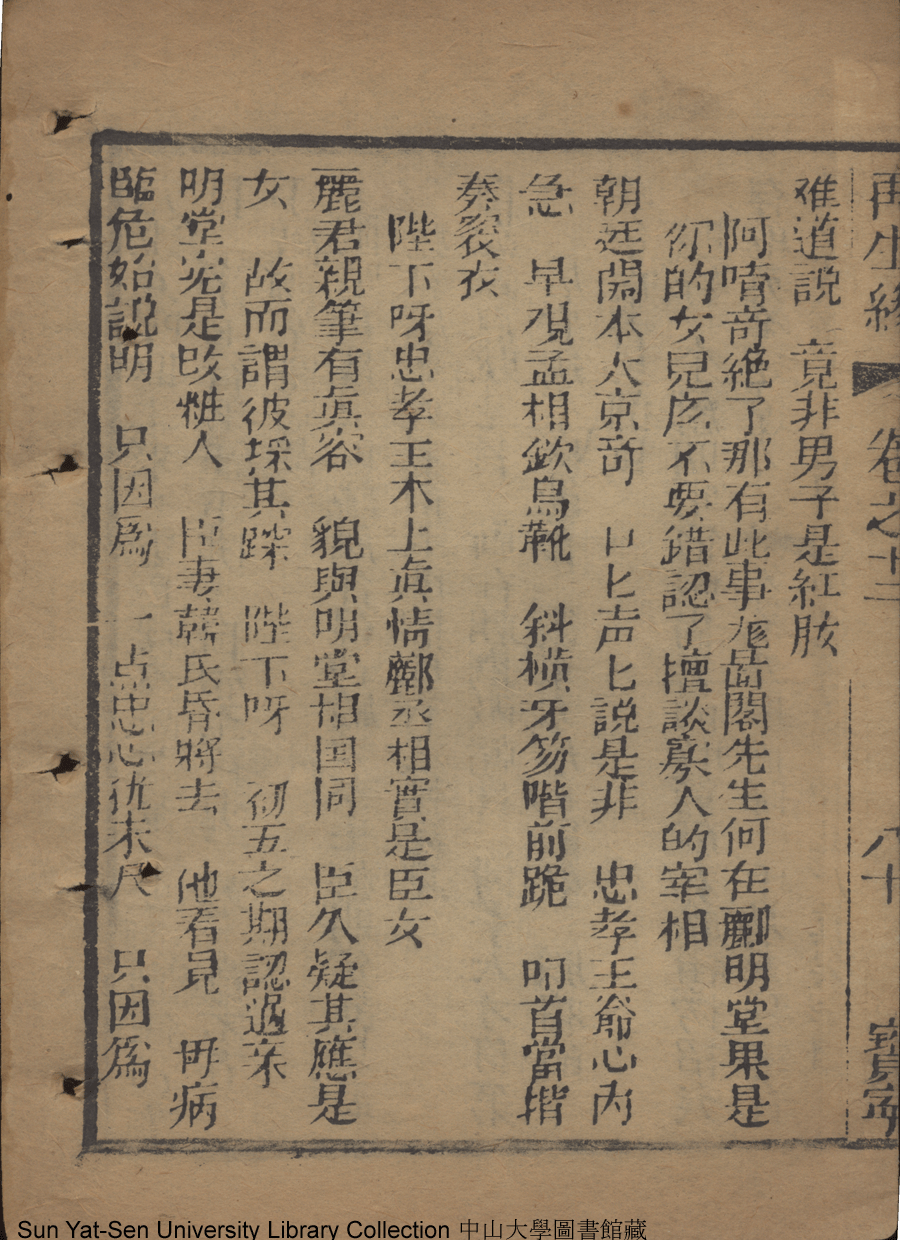 再生緣 卷之十三 八十 寶寧
难道説 竟非男子是紅肢
阿唷竒絶了那有此事𠫵啚閣先生何在酈明堂果是
你的女兒庅不要錯認了擅談寡人的宰相
朝廷開本大京竒 口匕声匕説是非 忠孝王爺心內
急 早𮗚孟相欽烏靴 斜横牙笏喈前跪 叩首當揩
奏衮衣
陛下呀忠孝王木上眞情酈丞相實是臣女
麗君親筆有眞容 貌與明堂相囯同 臣久疑其應是
女 故而謂彼埰其踪 陛下呀 初五之期認過亲
明堂宪是改粧人 臣妻韓氏昏將去 他看見 毋病
臨危始説明 只因爲 一点忠心犹未尺 只因爲
Sun Yat-Sen University Library Collection 中山大學圖書館藏